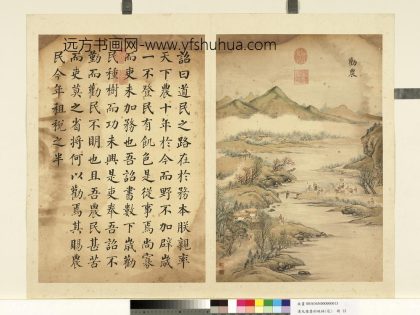 远方书画网-www.yfshuhua.com
勸農
詔曰道民之路在於務本朕親率
天下農十年於今而野不加辟歲
一不登民有飢色是從事焉尚寡
而吏未加務也吾詔書數下歲勸
民種樹而功未興是吏奉吾詔不
勤而勸民不明也且吾農民甚苦
而吏莫之省將何以勸焉其賜農
民今年租稅之半